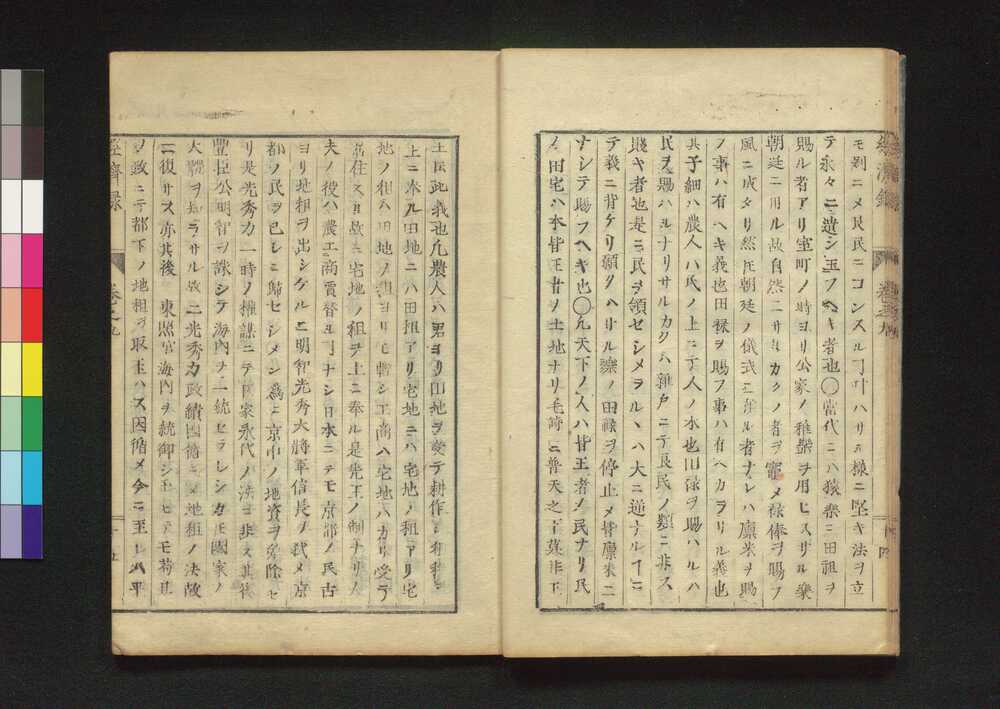 モ剥ニメ良民ニコンスルヿナハリ様ニ堅キ法ヲ立
テ永々ニ遺シ玉フヘキ者也〇當代ニハ猿楽ニ田祖ヲ
賜ル者アリ室町ノ時ヨリ公家ノ雅樂ヲ用ヒスサル樂
朝廷ニ用ル故自然ニサルカクノ者ヲ寵メ禄俸ヲ賜フ
風ニ成タリ然𪜈朝廷ノ儀式ニ用ル者ナレハ廪米ヲ賜
フ事ハ有ヘキ義也田禄ヲ賜フ事ハ有ヘカラサル義也
其子細ハ農人ハ氏ノ上ニテ人ノ本也田禄ヲ賜ハルハ
民ヲ賜ハルナリサルカクハ雜戸ニテ良民ノ類ニ非ス
賎キ者也是ニ民ヲ領セシメラルヽハ大ニ逆ナルヿニ
テ義ニ背ケリ願クハサル樂ノ田禄ヲ停止メ皆廪米ニ
ナシテ賜フヘキ也〇凢天下ノ人ハ皆王者ノ民ナリ民
ノ田宅ハ本皆王者ノ土地ナリ毛詩ニ普天之下莫非下
經濟録
卷之九
十四
王土此義也凢農人ハ男ヨリ田地ヲ受テ耕作シ有秋ニ
上ニ奉ル田地ニハ田租アリ宅地ニハ宅地ノ租アリ宅
地ノ租ハ田地ノ租ヨリモ輕シ工商ハ宅地ハカリ受テ
居住スル故ニ宅地ノ租ヲ上ニ奉ル是先王ノ制ナリ人
夫ノ役ハ農工商貫替ルヿナシ日本ニテモ京都ノ民古
ヨリ地租ヲ出シケルニ明智光秀大將軍信長ヲ弑メ京
都ノ民ヲ已レニ歸セシメン爲ニ京中ノ地資ヲ免除セ
リ是光秀カ一時ノ權謀ニテ國家永代ノ法ニ非ス其後
豐臣公明智ヲ誅シテ海内ヲ一統セラレシカ𪜈國家ノ
大體ヲ知ラサル故ニ光秀カ政績因循シメ地租ノ法故
ニ復サス亦其後 東照宮海内ヲ統御シ玉ヒテモ荷且
ノ政ニテ都下ノ地租ヲ取玉ハス因循メ今ニ至レハ平
經濟録
卷之九
十五